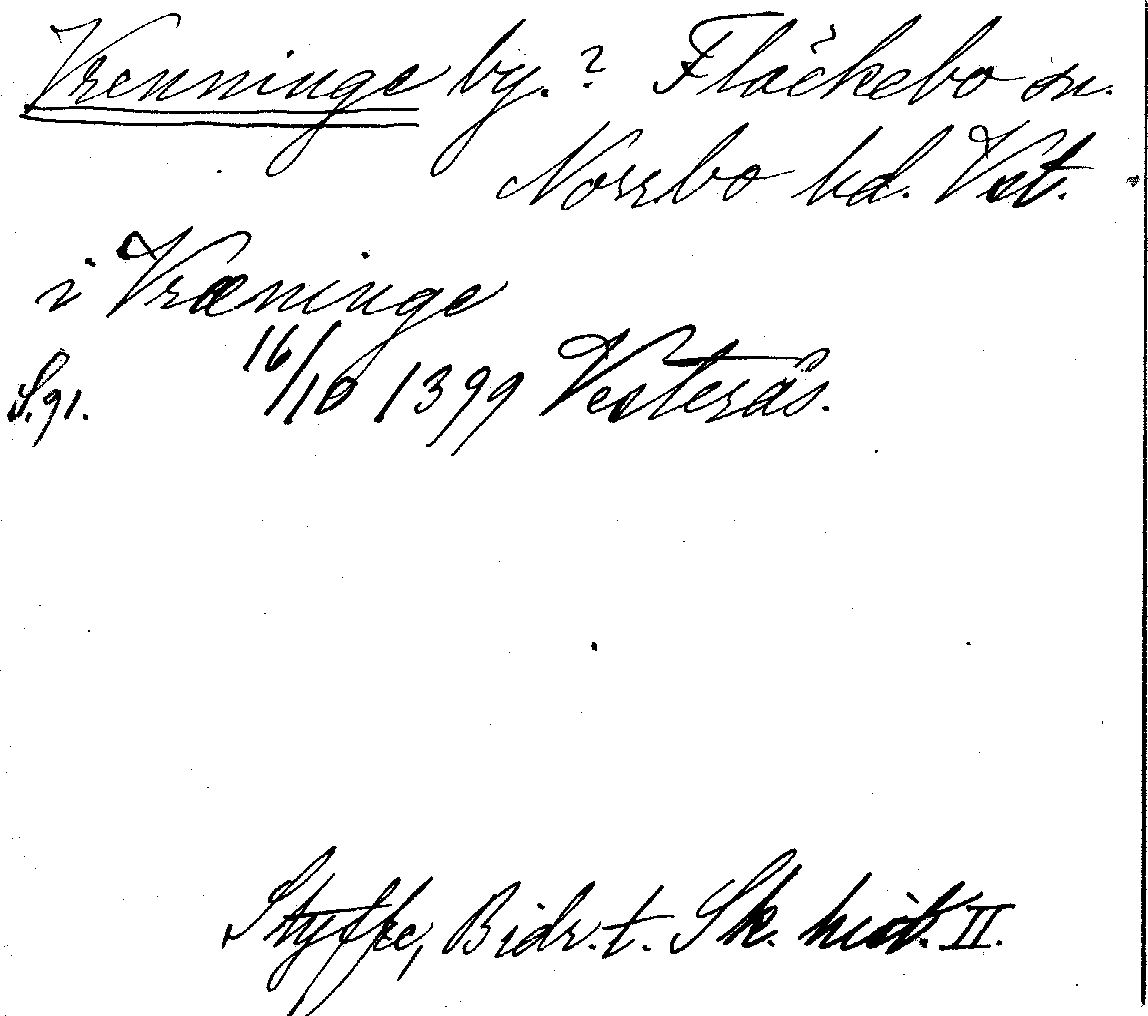 Vrenninge by.? Fläckebo sn.
Norrbo hd. Vst.
i Vræninge
S. 91. 16/10 1399 Vesterås.
Styffe, Bidr. t. Sk. hist. II.